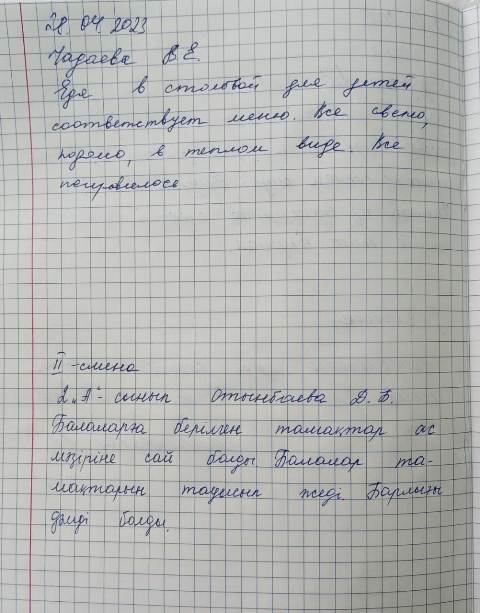 28. 04. 2023
Чадаева В. Е.
Еда в столовой для детей
соответствует меню. Все свежо,
в теплом виде. Все
понравилось
II -смена
2 "А"- сынып Отынбаева Д. Б.
Балаларға берілген тамақтар ас
мәзіріне сай болды. Балалар та-
мақтарын тауысып жеді. Барлығы
дәмді болды.